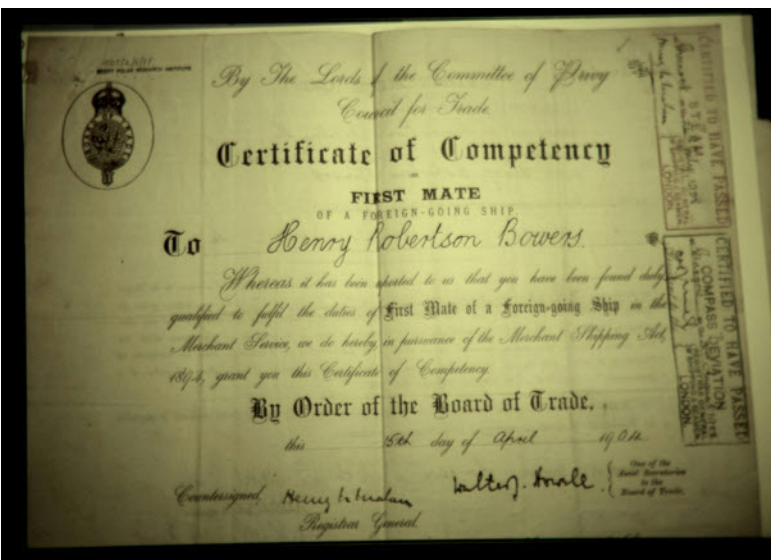 SCOTT POLAR RESEARCH INSTITUTE
By The Lords of the Committee of Privy
Council for Trade.
Certificate of Competency
AS
FIRST MATE
OF A FOREIGN-GOING SHIP.
To Henry Robertson Bowers.
Whereas it has been reported to us that you have been found duly
qualified to fulfil the duties of First Mate of a Foreign-going Ship in the
Merchant Service, we do hereby, in pursuance of the Merchant Shipping Act,
1894, grant you this Certificate of Competency.
By Order of the Board of Trade,
this 15th day of April
Countersigned,
Registrar General.
One of the
Secretaries
to the
Board of Trade.
CERTIFIED TO HAVE PASSED
STEAM
LONDON.
CERTIFIED TO HAVE PASSED
COMPASS DEVIATION
LONDON.